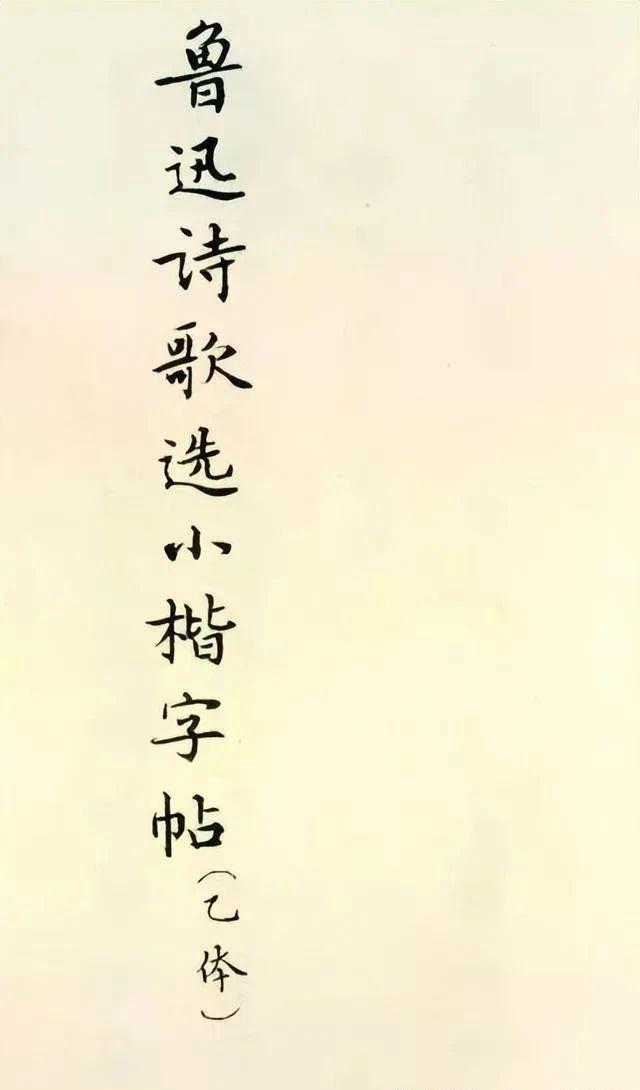 鲁迅诗歌选小楷字帖(乙体)